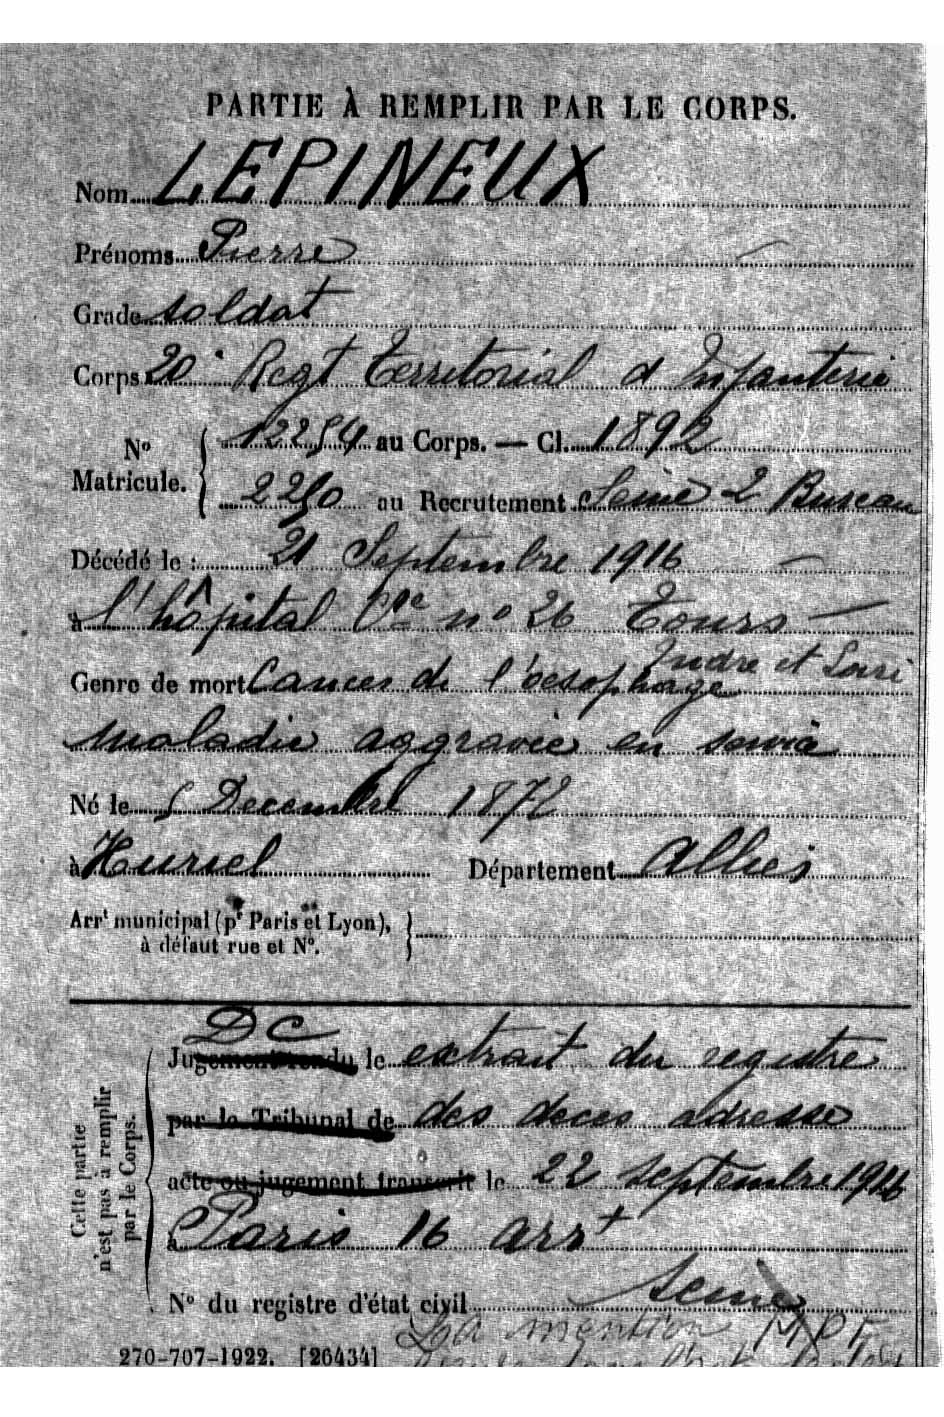 PARTIE À REMPLIR PAR LE CORPS.
Nom LEPINEUX
Prénoms Pierre
Grade soldat
Corps 20e Regt Territorial d Infanterie
No Matricule. { 12254 au Corps. — Cl. 1892
2250 au Recrutement Seine 2 Bureau
Décédé le : 21 Septembre 1916 —
à l'hôpital Cre no 26 Tours —
Indre et Loire
Genre de mort Cancer de l'oesophage
maladie aggravée en service
Né le 5 Decembre 1872
à Huriel Département Allier
Arrt municipal (pr Paris et Lyon),
à défaut rue et No.
DC
Jugement rendu le extrait du registre
par le Tribunal de des deces adresse
acte ou jugement transcrit le 22 septembre 1916
à Paris 16 arrt
Seine
No du registre d'état civil
La mention MPF
Cette partie
n'est pas à remplir
par le Corps.
270-707-1922. [26434]